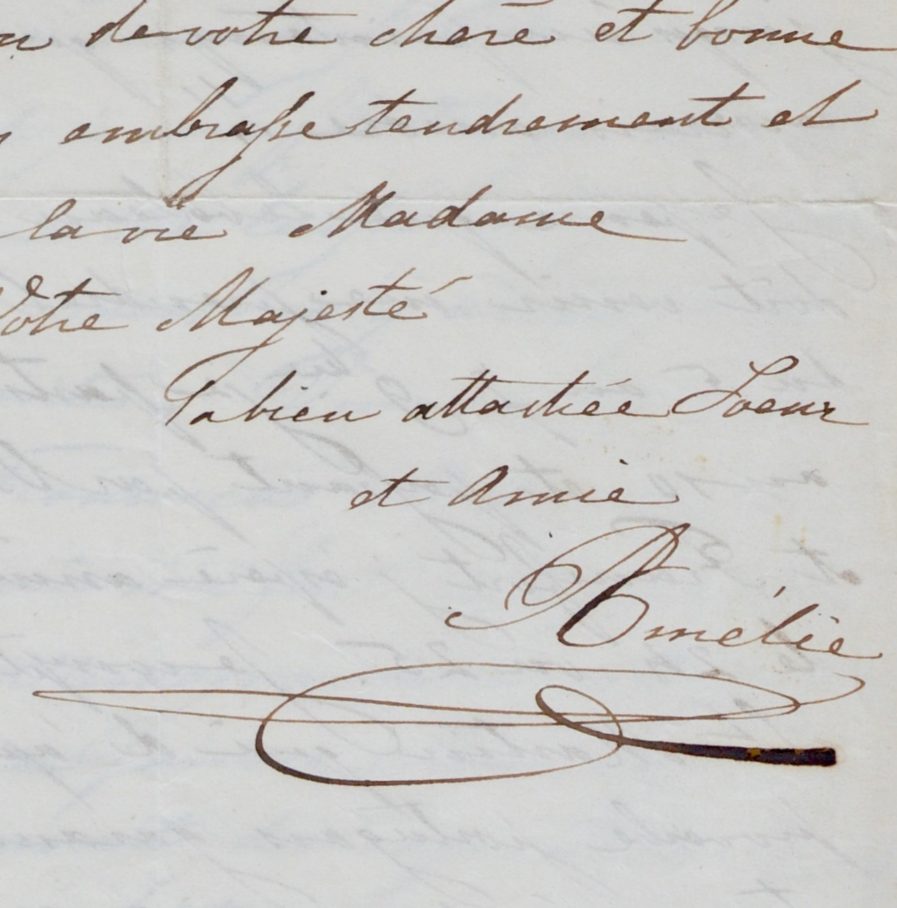 de votre chère et bonne
embrasse tendrement et
la vie Madame
Votre Majesté
La bien attachée Soeur
et Amie
Amélie